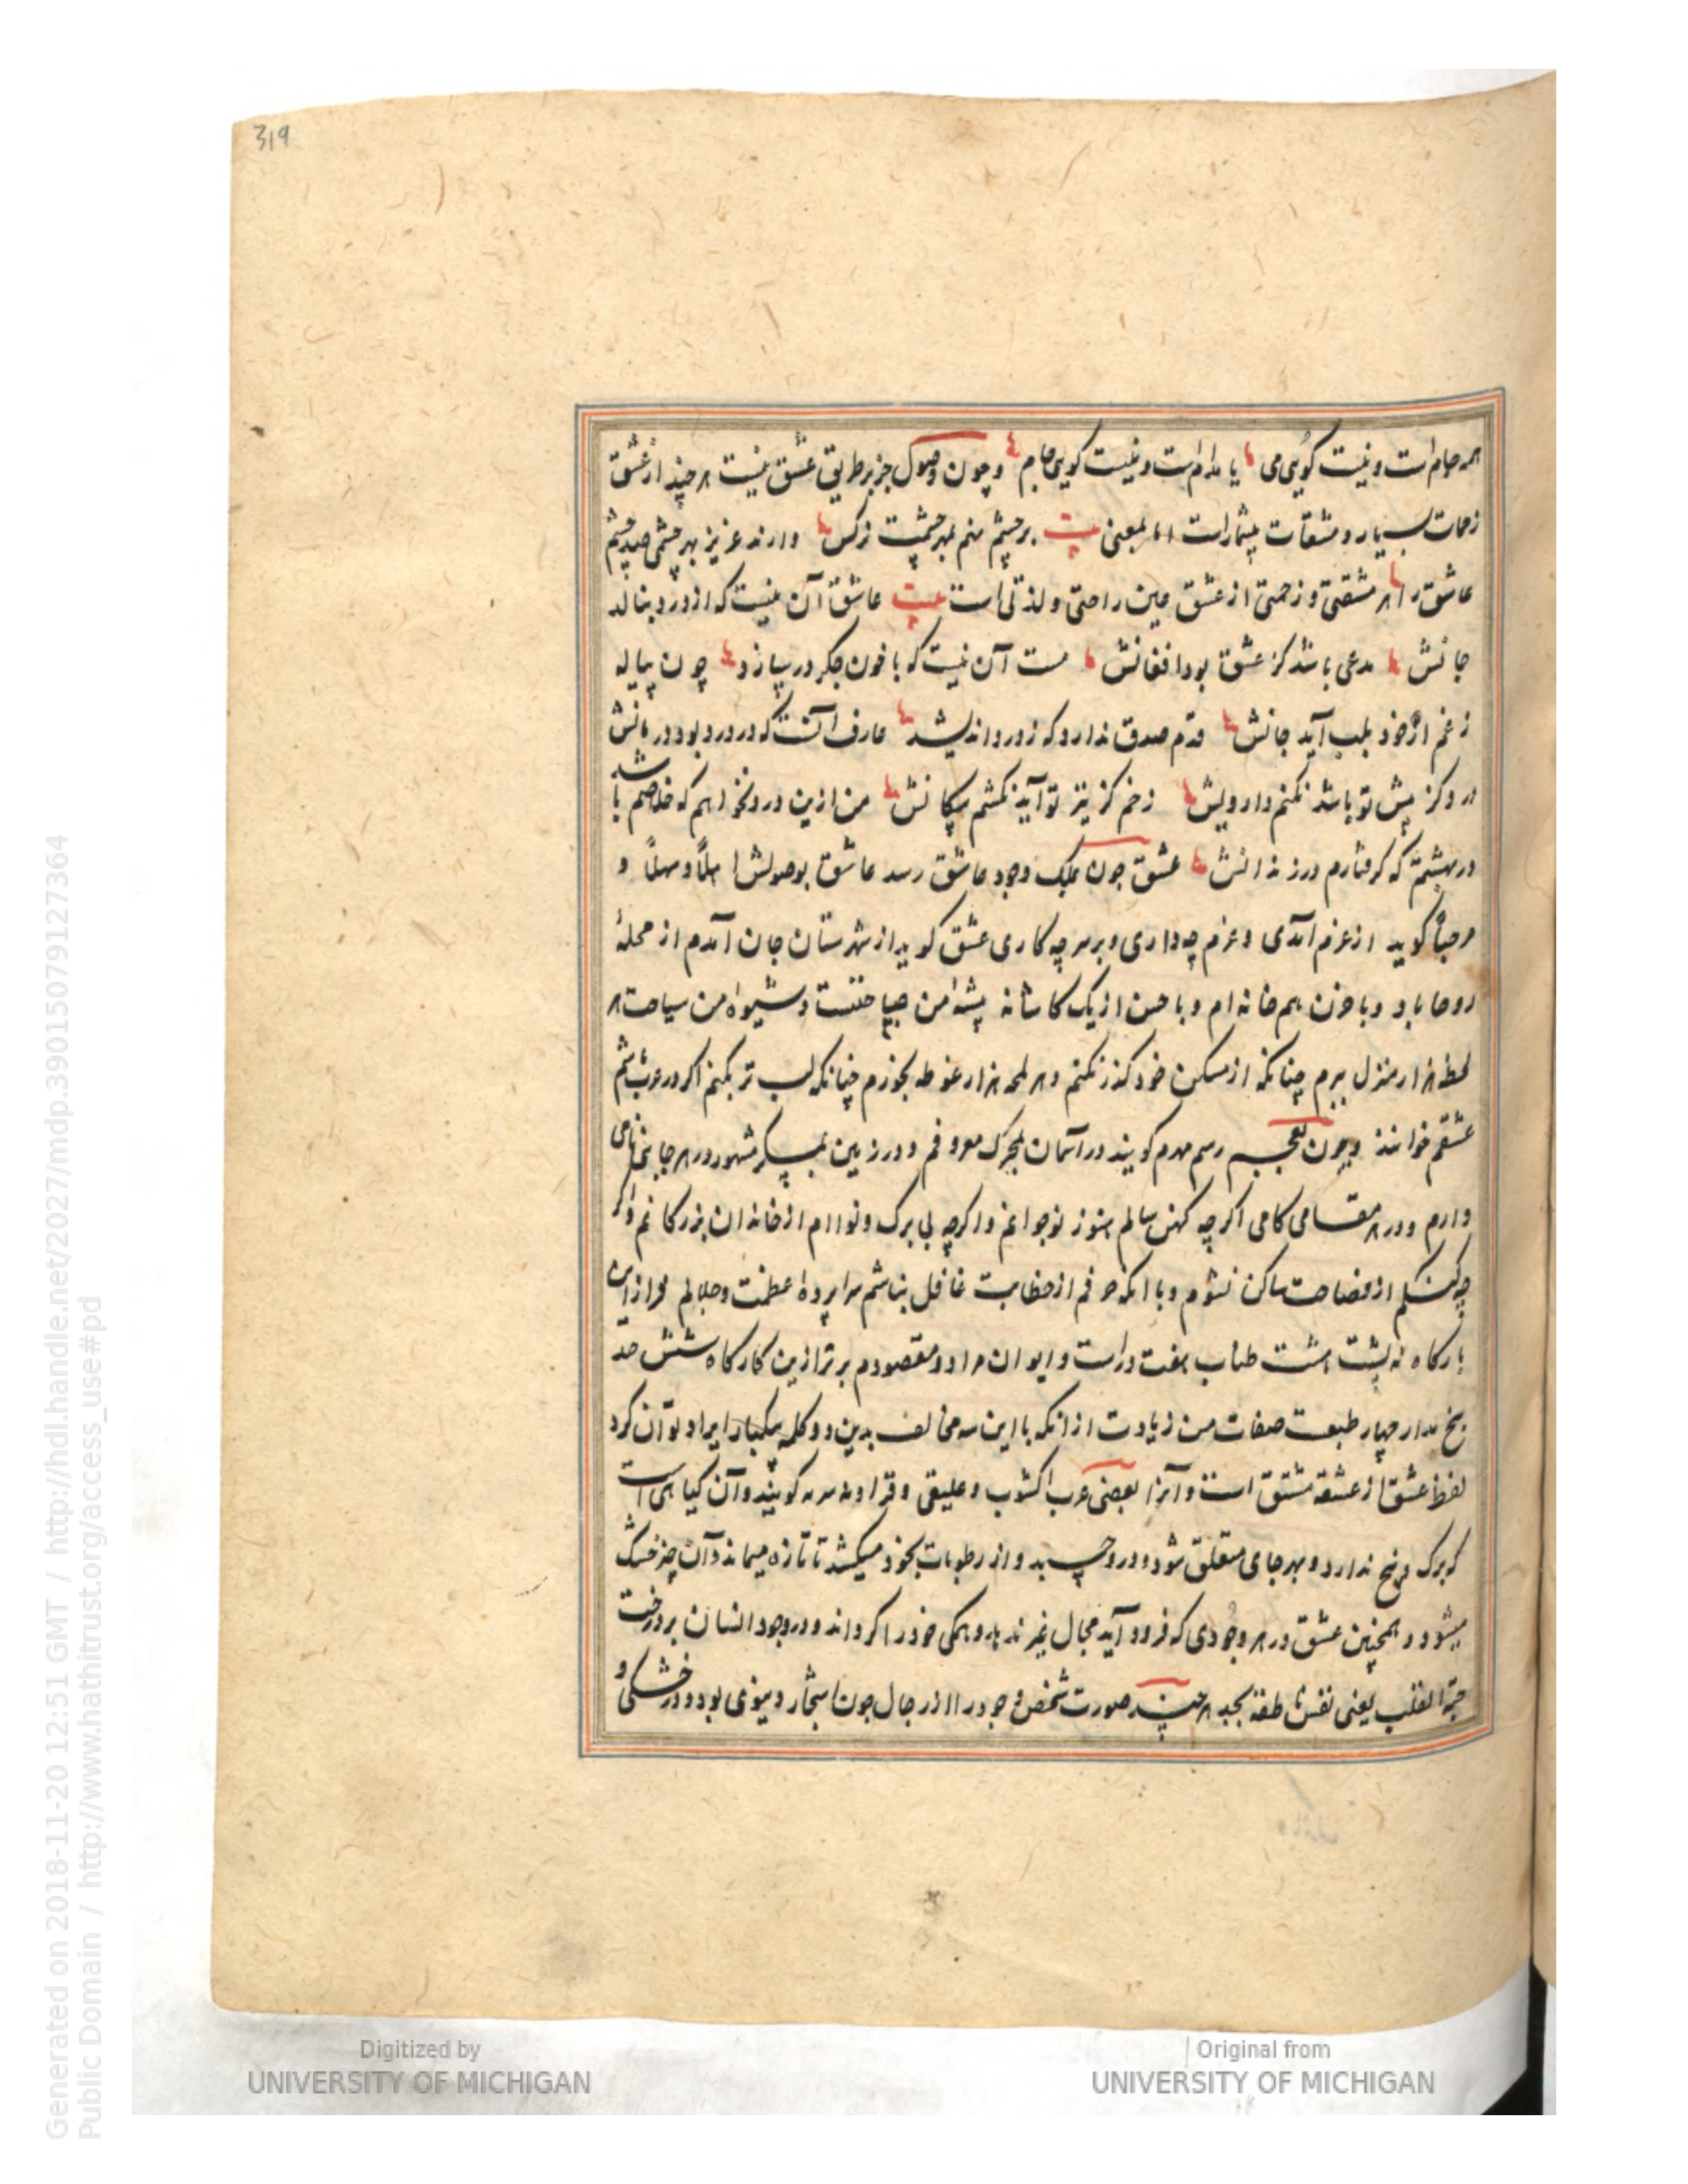 319
همه جام است و نیست گویی می یا مدام است و نیست گویی جام و چون وصول جز بر طریق عشق نیست هر چند از عشق
زحمات بسیار و مشقات بیشمار است اما بمعنی بیت بر چشم نهم بهر چشمت نرکس دارند عزیز بهر چشمی صد چشم
عاشق را هر مشقتی و زحمتی از عشق عین راحتی و لذتی است بیت عاشق آن نیست که از درد بنالد
جانش مدعی باشد کز عشق بود افغانش مست آن نیست که با خون جکر در سازد چون پیاله
ز غم از خود بلب آید جانش قدم صدق ندارد که ز درد اندیشد عارف آنست که در درد بود درمانش
درد کز پیش تو باشد نکنم دارویش زخم کز تیر تو آید نکشم پیکانش من ازین درد نخواهم که خلاصم باشد
در بهشتم که کرفتارم در زندانش عشق چون بملک وجود عاشق رسد عاشق بوصولش اهلاً و سهلاً و
مرحباً کوید از عزم آمدی و عزم چه داری و بر سر چه کاری عشق کوید از شهرستان جان آمدم از محلهٔ
روحاباد و با حزن هم خانه ام و با حسن از یک کاشانه پیشه من سیاحتست و شیوه من سیاحت هر
لحظه هزار منزل ببرم چنانکه از مسکن خود کذر نکنم و هر لمحه هزار غوطه بخورم چنانکه لب تر نکنم اکر در عرب باشم
عشقم خوانند و چون بعجم رسم مهرم کویند در آسمان بمحرک معروفم و در زمین بمسکر مشهور در هر جایی نامی
دارم و در هر مقامی کامی اکر چه کهن سالم هنوز نوجوانم و اکر چه بی برک و نوا ام از خاندان بزرکانم و اکر
چه کنکم از فصاحت ساکن نشوم و با آنکه حرفم از خطابت غافل نباشم سراپرده عظمت و جلالم فراز این
بارکاه نه پشت هشت طناب هفت در است و ایوان مراد و مقصودم برتر ازین کارکاه شش حد
پنج مدار چهار طبیعت صفات من زیادت از آنکه با این سه مخالف بدین دو کلمه یکبار ایراد توان کرد
لفظ عشق از عشقه مشتق است و آنرا بعضی عرب اکشوب و علیقی و قرا و نه سر مه کویند و آن کیاهی است
که برک و بیخ ندارد و بهر جای متعلق شود و در و چسبد و از رطوبات بخود میکشد تا تازه میماند و آن چیز خشک
میشود و همچنین عشق در هر وجودی که فرود آید مجال غیر ندارد و همکی خود را کرداند و در وجود انسان بر درخت
حبة القلب یعنی نفس ناطقه بجبد هر چند صورت شخص وجود را از رجال چون اشجار دنیوی بود و در خشکی و